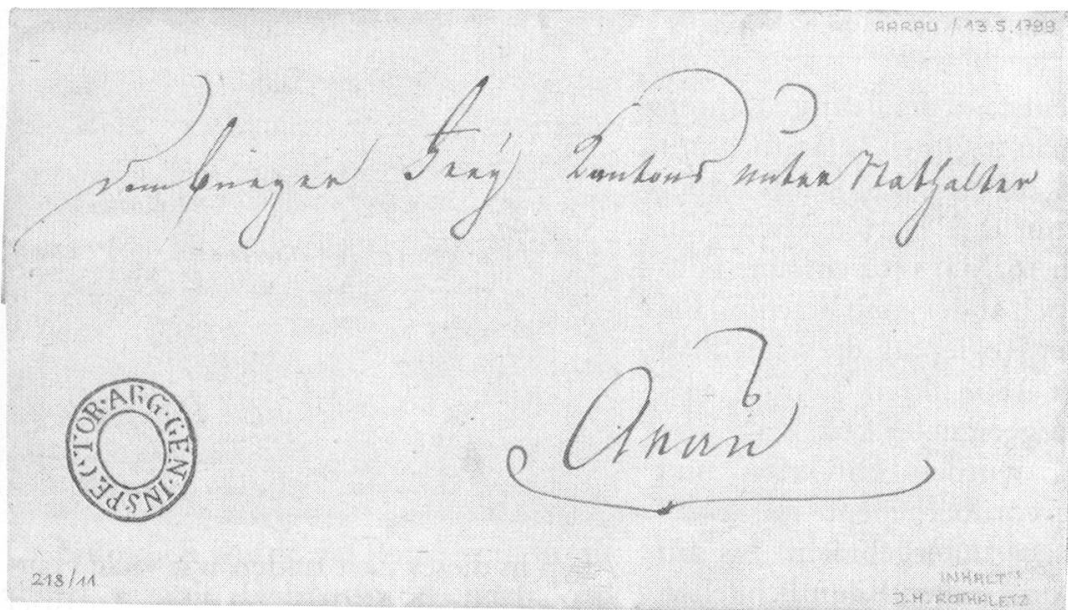 AARAU / 13.5.1799
dem bürger Freÿ Kantons unter Stathalter
Arau
GEN·INSPECTOR·ARG·
218/11
INHALT:
J.H. ROTHPLETZ